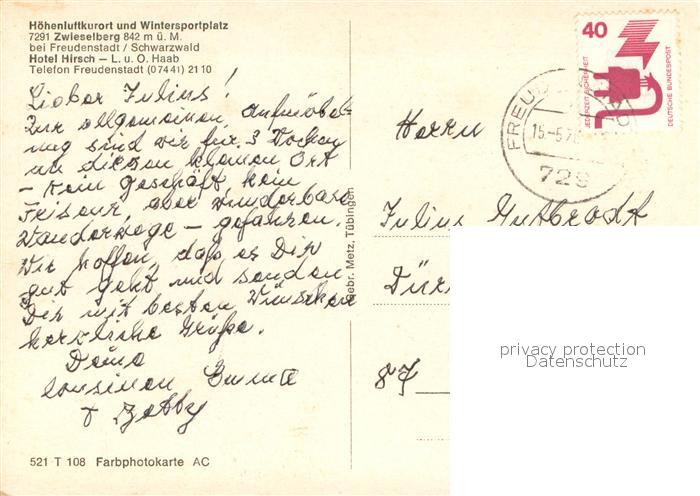 Höhenluftkurort und Wintersportplatz
7291 Zwieselberg 842 m ü. M.
bei Freudenstadt / Schwarzwald
Hotel Hirsch – L. u. O. Haab
Telefon Freudenstadt (07441) 2110
Lieber Julius!
Zur allgemeinen Aufmöbel-
ung sind wir für 3 Wochen
in diesen kleinen Ort
– kein Geschäft, kein
Friseur, aber wunderbare
Wanderwege – gefahren.
Wir hoffen, daß es Dir
gut geht und senden
Dir mit besten Wünschen
herzliche Grüße.
Deine
Cousinen Emma
+ Betty
521 T 108 Farbphotokarte AC
Gebr. Metz, Tübingen
40
JEDERZEIT SICHERHEIT
DEUTSCHE BUNDESPOST
FREUD
15.-5.7
729
Herrn
Julius Gutbrodt
Dür
87
privacy protection
Datenschutz